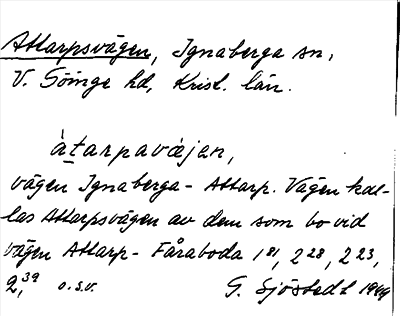 Attarpsvägen, Ignaberga sn,
V. Göinge hd, Krist. län.
àtarpavä́jen,
vägen Ignaberga - Attarp. Vägen kal-
las Attarpsvägen av dem som bo vid
vägen Attarp - Fåraboda 1⁸¹, 2²⁸, 2²³,
2,³⁹ o.s.v. G. Sjöstedt 1949